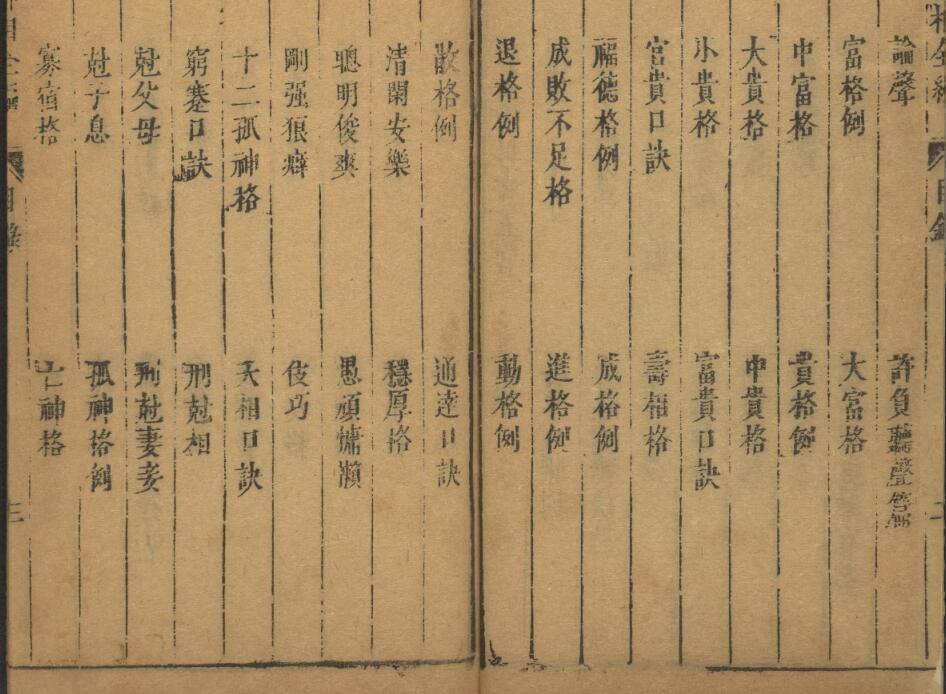 論聲
許負聽聲
富格例
大富格
中富格
貴格例
大貴格
中貴格
小貴格
富貴口訣
宮貴口訣
壽相格
福德格例
成格例
成敗不足格
進格例
退格例
動格例
敗格例
通達口訣
清閑安樂
穩厚格
聰明俊爽
愚頑慵懶
剛强狼癖
伎巧
十二孤神格
夭相口訣
窮塞口訣
刑尅相
尅父母
刑尅妻妾
尅子息
孤神格例
寡宿格
神格
目錄
三